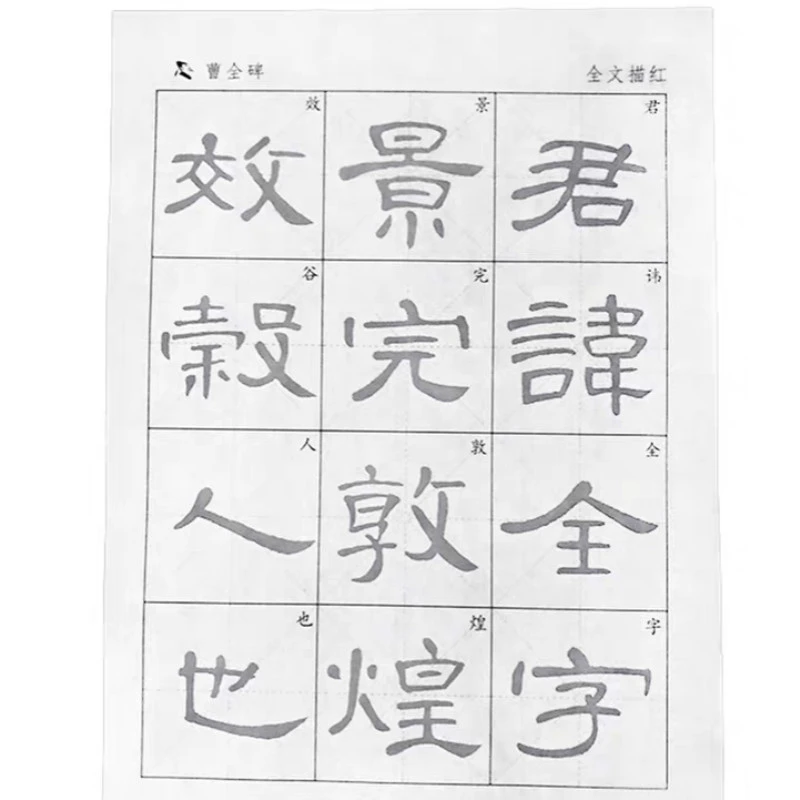 曹全碑
全文描红
君讳全字
君諱全字
景完敦煌
景完敦煌
效谷人也
效穀人也